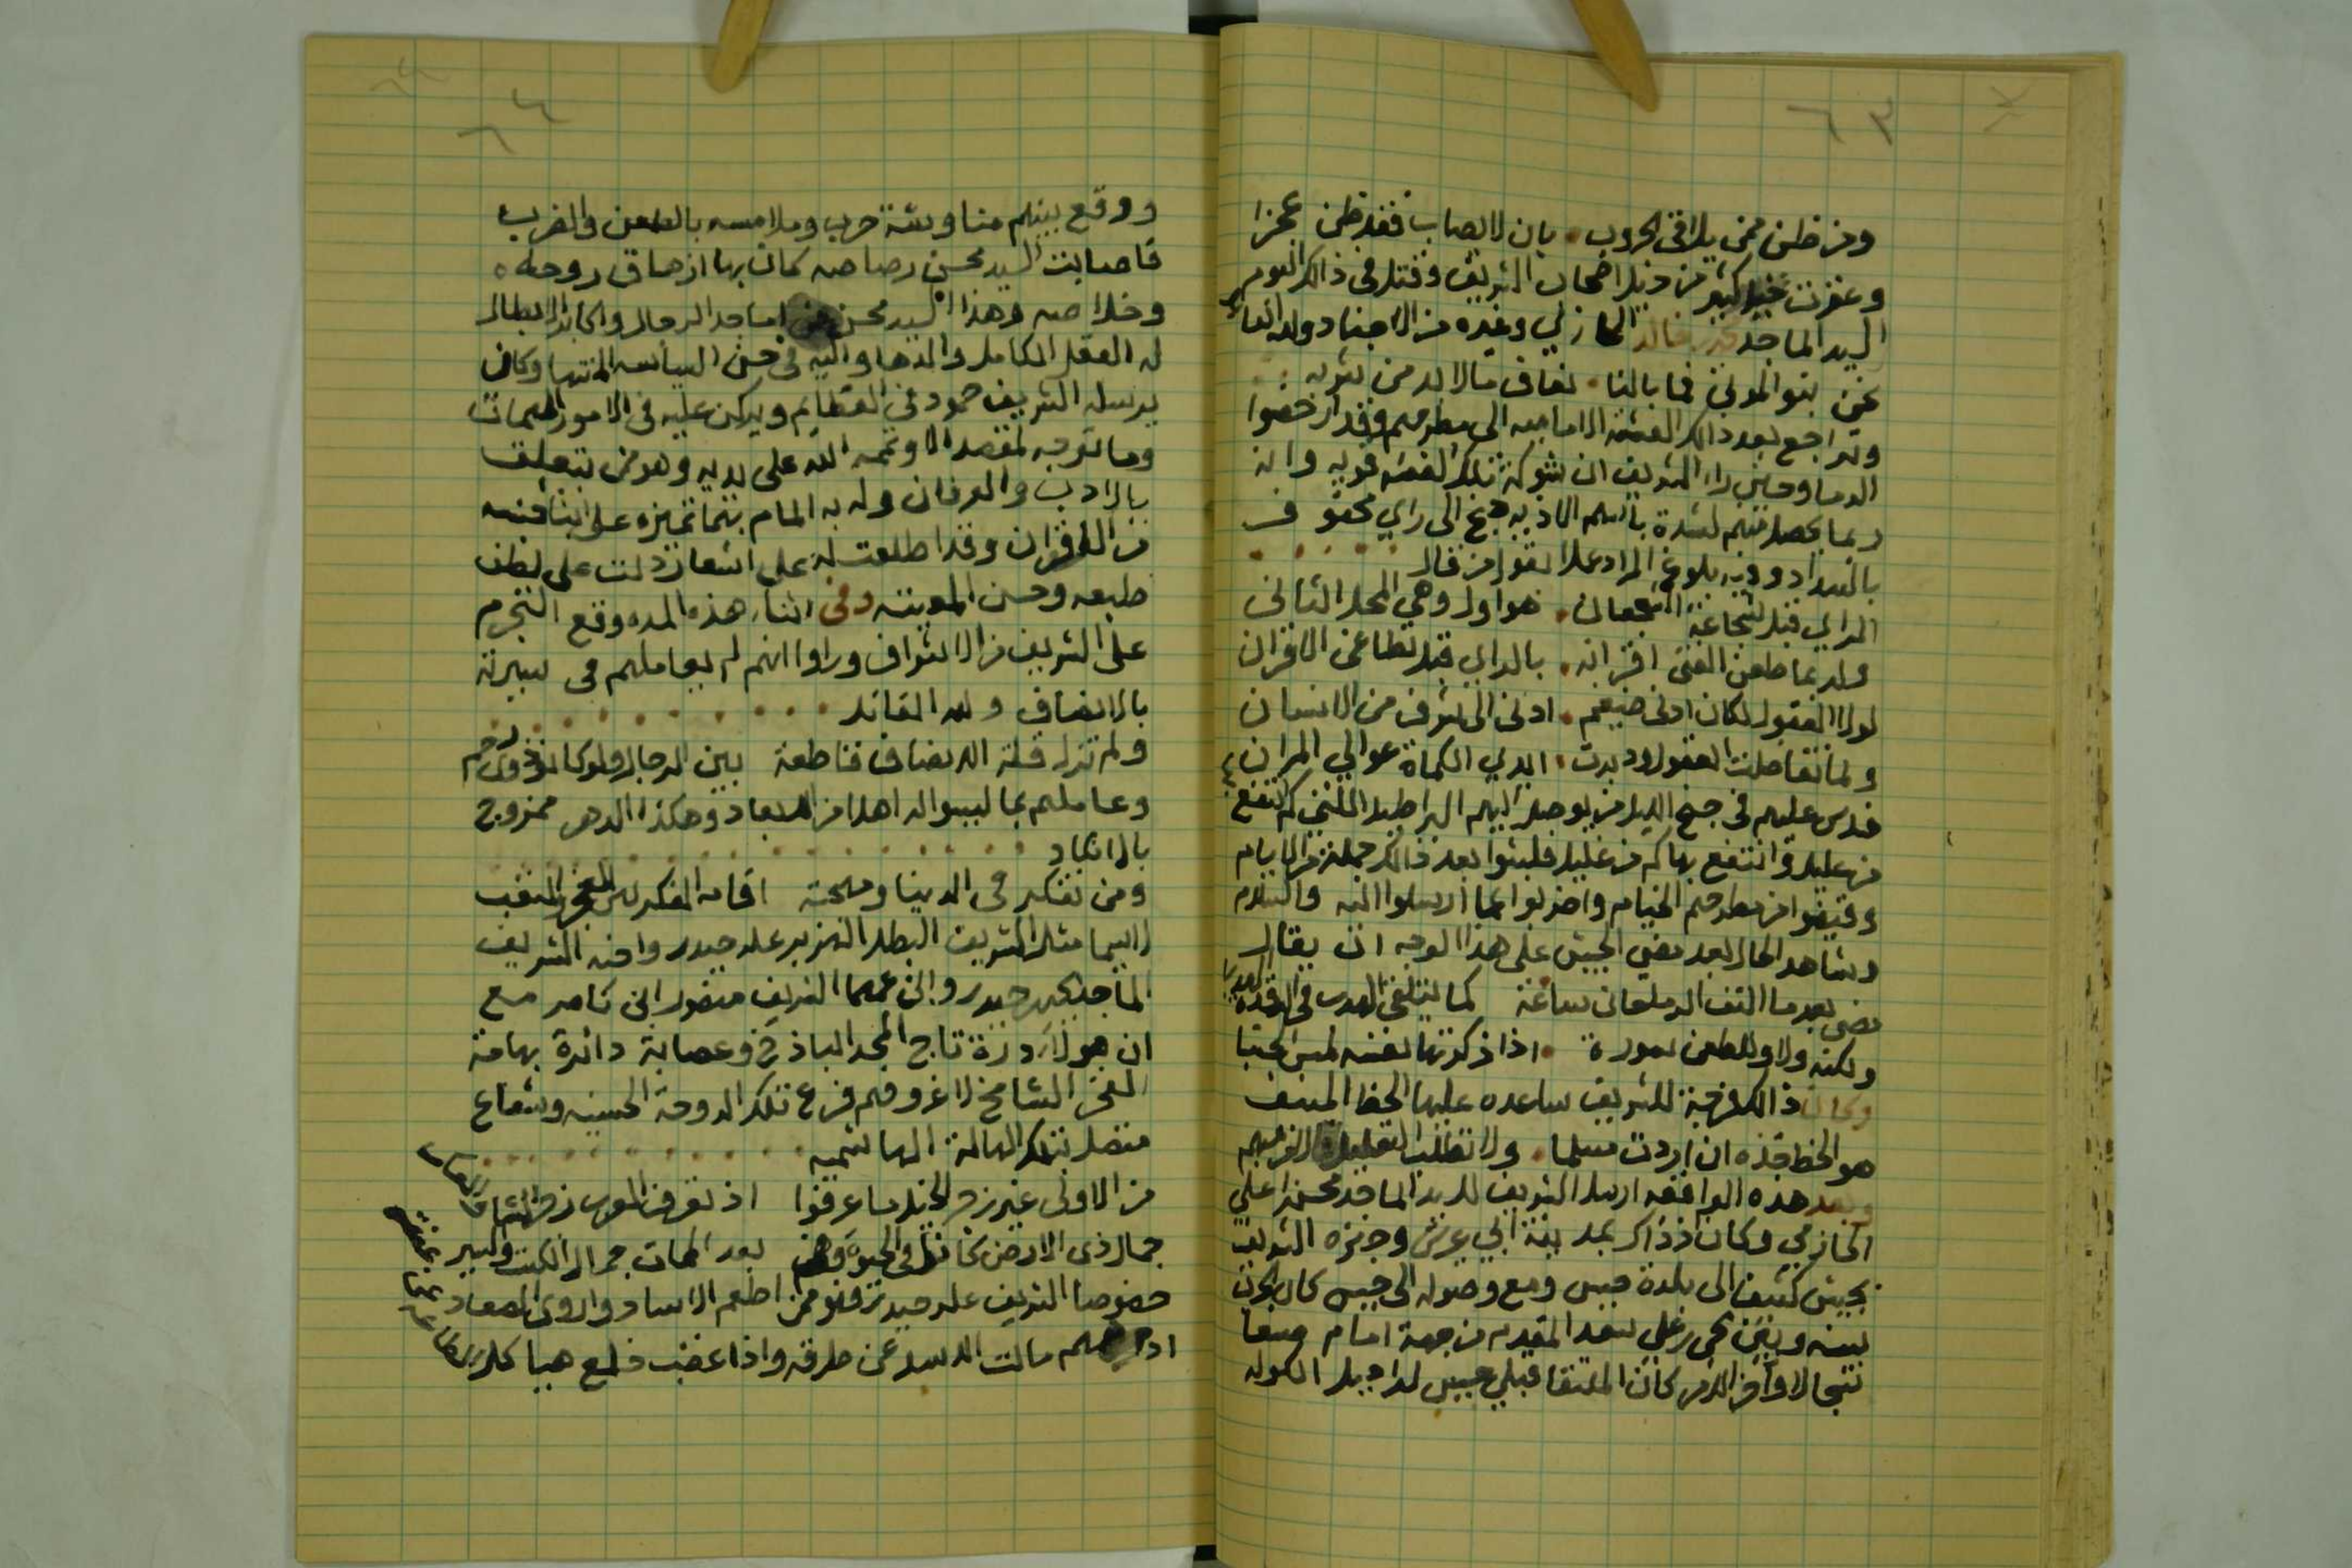 ٦٣
ومن ظن ممن يلاقي الحروب . بان لا يصاب فقد ظن عجزا
وعقرت خيل كثير من خيل اصحاب الشريف وقتل في ذالك اليوم
السيد الماجد خالد الحازمي وغيره من الاجناد ولله القائل
نحن بنو الموتى فما بالنا . نعاف مالا بد من شربه
وتراجع بعد ذالك الفئة الاماميه الى مطرحهم وقد ارخصوا
الدما وحين راء الشريف ان شوكة تلك الفئه قويه وانه
ربما يحصل منهم لشدة باسهم الاذيه جنح الى راي محفوف
بالسداد وفيه بلوغ المراد عملا بقول من قال
الراي قبل شجاعة الشجعان . هو اول وهي المحل الثاني
ولربما طعن الفتى اقرانه . بالراي قبل تطاعن الاقران
لولا العقول لكان ادنى ضيغم . ادنى الى شرف من الانسان
ولما تفاضلت العقول ودبرت . ايدي الكماة عوالي المران
فدس عليهم في جنح الليل من يوصل اليهم البراطيل اللتي كم انتفع
من عليل وانتفع بها كم من غليل فلبثوا بعد ذالك جملة من الايام
وقوضوا من مطرحهم الخيام واضربوا عما ارسلوا اليه والسلام
وشاهد الحال بعد مضي الجيش على هذا الوجه ان يقال
مضى بعد ما التف الرماحان ساعة كما يتلقى الهدب في الرقدة الهدبا
ولكنه ولا وللطعن سورة . اذا ذكرتها نفسه لمس الجنبا
وكان ذالك فرجة للشريف ساعده عليها الحظ المنيف
هو الحظ فخذه ان اردت مسلما . ولا تطلب التعليل فالامر مبهم
وبعد هذه الواقعه ارسل الشريف السيد الماجد محسن بن علي
الحازمي وكان اذ ذاك بمدينة ابي عريش وجهزه الشريف
بجيش كثيف الى بلدة حيس ومع وصوله الى حيس كان الحرب
بينه وبين يحي بن علي سعد المقدم من جهة امام صنعا
سجالا واخر الامر كان الملتقا قبلي حيس
٦٤
ووقع بينهم مناوشة حرب وملامسه بالطعن والضرب
فاصابت السيد محسن رصاصه كان بها ازهاق روحه
وخلاصه وهذا السيد محسن من اماجد الرجال واكابر الابطال
له العقل الكامل والدها واليه في حسن السياسه المنتها وكان
يرسله الشريف حمود في العظايم ويركن عليه في الامور المهمات
وما توجه لمقصد الا وتممه الله على يديه وهو ممن يتعلق
بالادب والعرفان وله به المام بتما تميزه على ابنا جنسه
من الاقران وقد اطلعت له على اشعار دلت على لطف
طبعه وحسن المعيته وفي اثناء هذه المده وقع التجرم
على الشريف من الاشراف وراوا انهم لم يعاملهم في سيرته
بالانصاف ولله القائل
ولم تزل قلة الانصاف قاطعة بين الرجال ولو كانوا ذوي رحم
وعاملهم بما ليسوا له اهلا من الابعاد وهكذا الدهر ممزوج
بالانكاد
ومن تفكر في الدنيا ومهجته اقامه الفكر بين العجز والتعب
لاسيما مثل الشريف البطل الهزبر علي حيدر واخيه الشريف
الماجد يحي حيدر وابن عمهما الشريف منصور ابن ناصر مع
ان هولاء درة تاج المجد الباذخ وعصابة دائرة بهامة
الفخر الشامخ لا غرو فهم فرع تلك الدوحة الحسنيه وشعاع
متصل بتلك الهالة الهاشميه
من الاولى غير زجر الخيل ما عرفوا اذ تعرف العرب زجر الشاء
جمال ذي الارض كانوا في الحيوة وهم بعد الممات جمال الكتب والسير
خصوصا الشريف علي حيدر فهو ممن اطعم الاساد واروى الصعاد
مالت الاسد عن طرقه واذا غضب